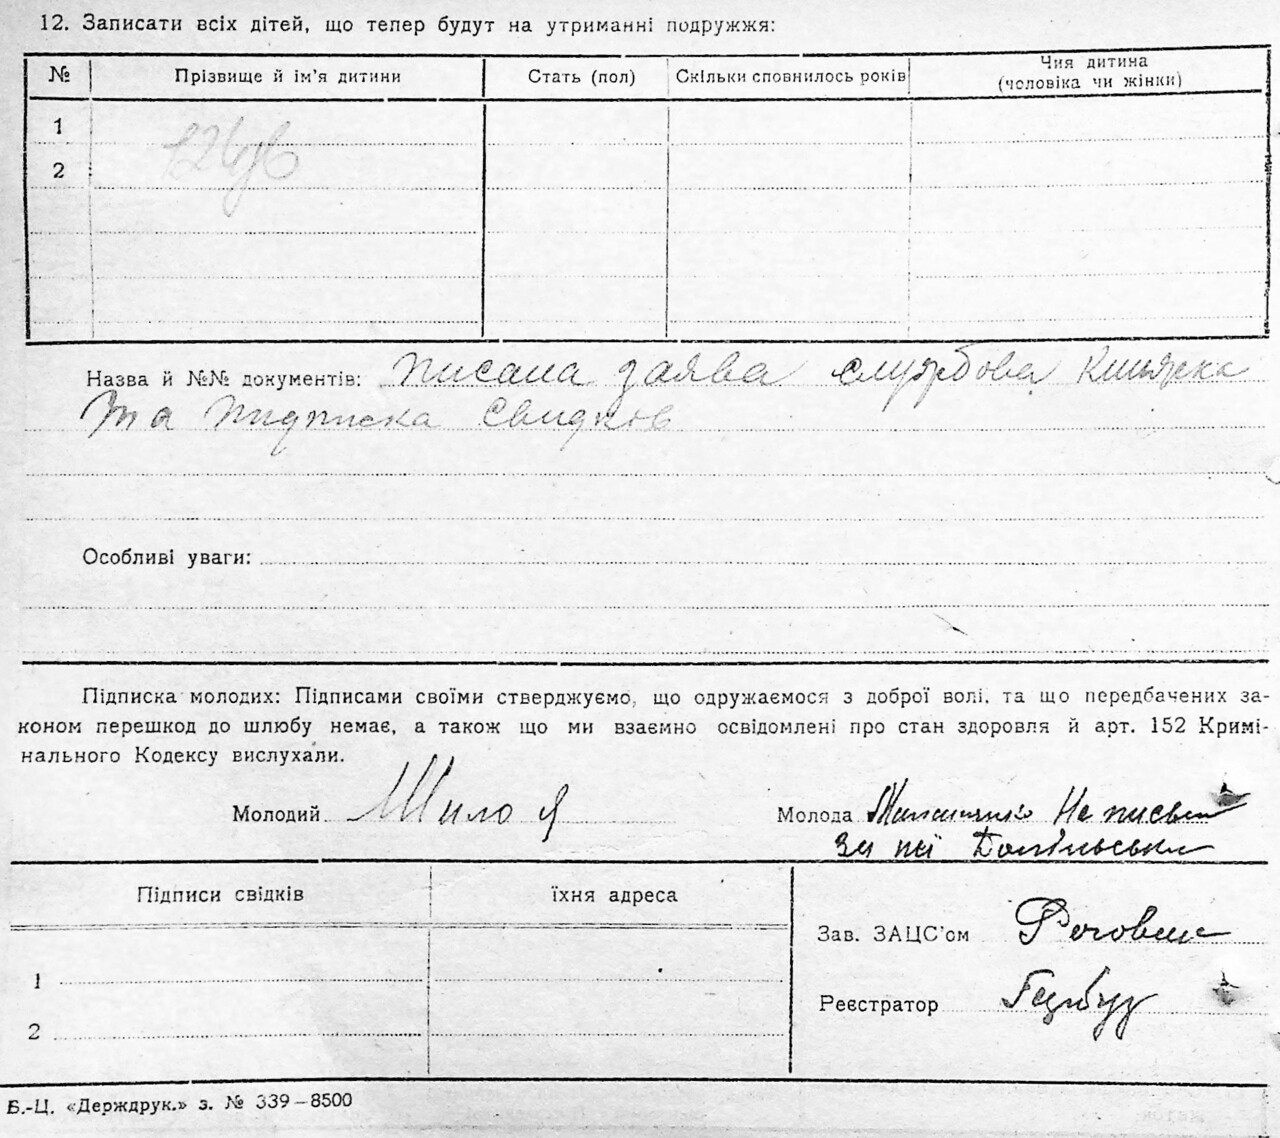 12. Записати всіх дітей, що тепер будут на утриманні подружжя:
№ Прізвище й ім'я дитини Стать (пол) Скільки сповнилось років Чия дитина
(чоловіка чи жінки)
1
2
Назва й №№ документів: писана заява службова книжка
та підписка свидков
Особливі уваги:
Підписка молодих: Підписами своїми стверджуємо, що одружаємося з доброї волі, та що передбачених за-
коном перешкод до шлюбу немає, а також що ми взаємно освідомлені про стан здоровля й арт. 152 Кримі-
нального Кодексу вислухали.
Молодий Шило Я Молода Не письм
За неї
Підписи свідків їхня адреса
Зав. ЗАЦС'ом
1
Реєстратор
2
Б.-Ц. «Держдрук.» з. № 339—8500